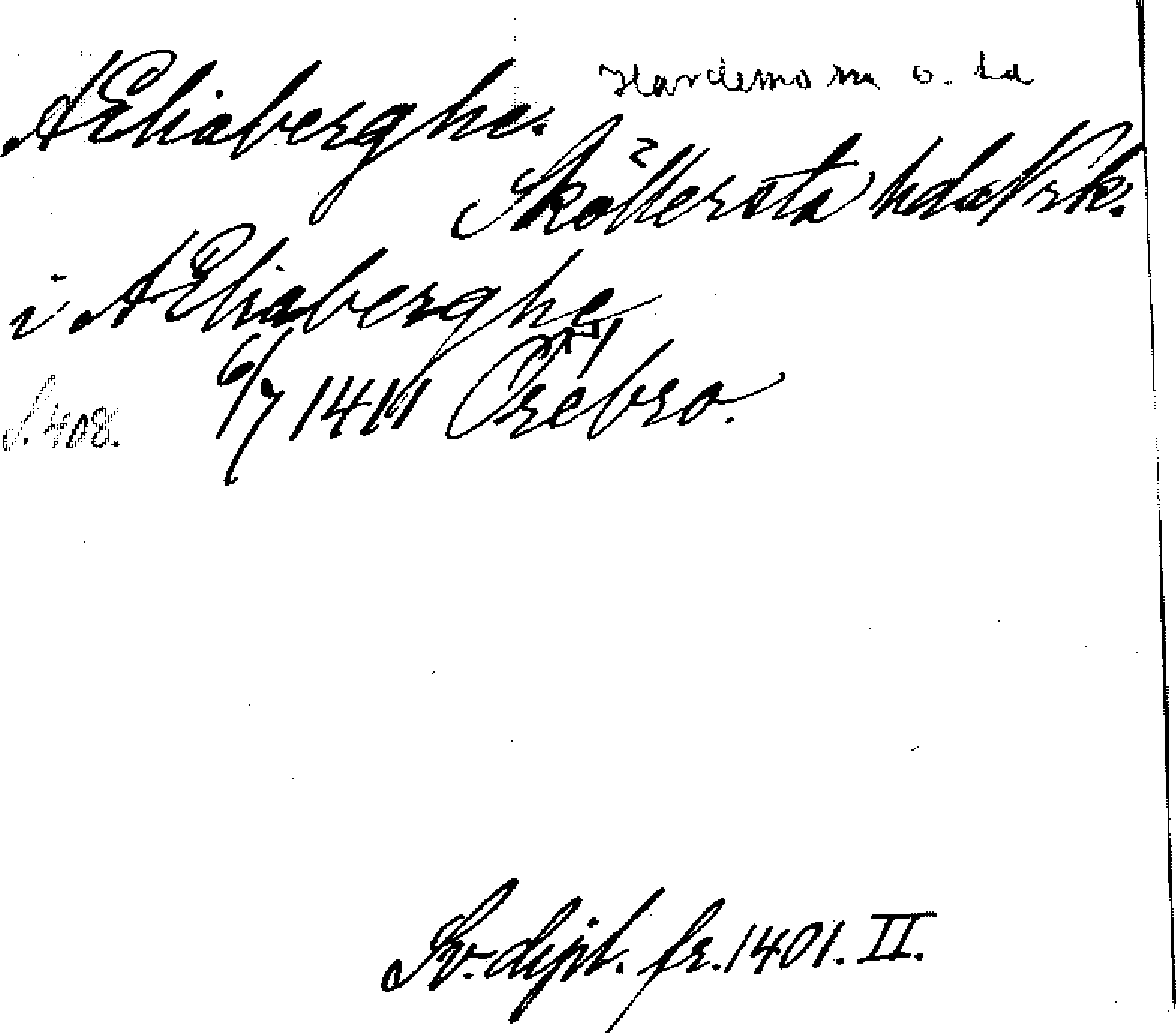 Æliaberghe. Hardemo sn o. hd
Sköllersta hd Nrk.
i Æliaberghe
6/7 1411 Örebro.
S. 408.
Sv. dipl. fr. 1401. II.